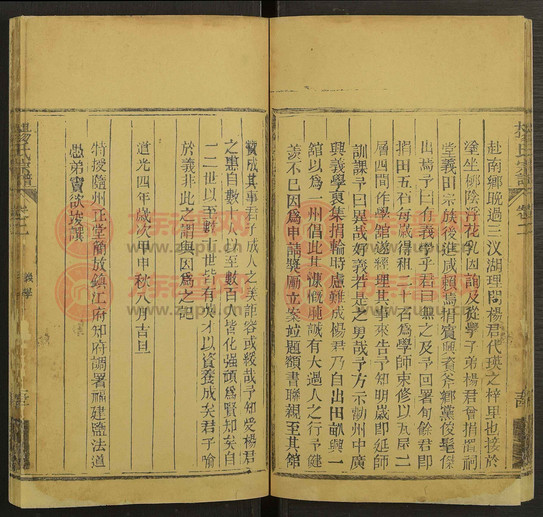 赴南鄉晚過三汊湖理問楊君代瑛之梓里也接於
塗坐柳陰浮花乳因詢及從學子弟楊君曾捐置祠
堂義田宗族後進咸賴焉惜賓興者斧鄉黨俊髦傑
出焉予曰有義學乎君曰無之及予回署旬餘君即
捐田五石每歲得租二十石為學師束修以瓦屋二
層四間作學館遂經理其事來告予知明歲即延師
訓課予曰異哉好義若是之勇哉予方示勸州中廣
興義學裒集捐輸時慮難成楊君乃自出田畝興一
館以為一州倡此其慷慨肫誠有大過人之行予健
羨不已因為申請獎勵立案並題額書聯親至其館
贊成其事君子成人之美詎容或緩哉予知愛楊君
之惠自數人以至數百人皆化強頑為賢知矣自
一二世以至數十世皆有美才以資養成矣君子喻
於義非此之謂與因為之記
道光四年歲次甲申秋八月吉旦
特授隨州正堂簡放鎮江府知府調署福建鹽法道
愚弟寶欲峻撰
楊氏宗譜
卷二
義學